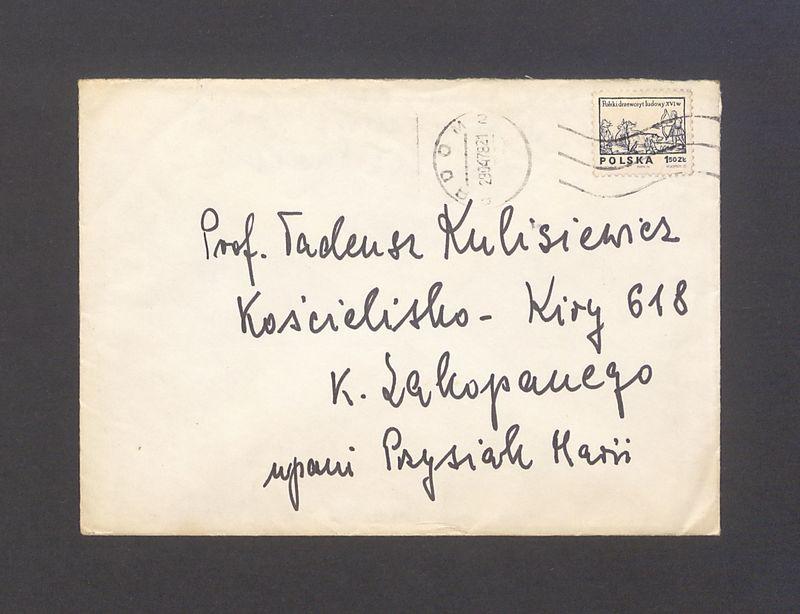 Polski drzeworyt ludowy XVI w
POLSKA 150 ZŁ
RADOM 2
28047821
Prof. Tadeusz Kulisiewicz
Kościelisko - Kiry 618
k. Zakopanego
u pani Przysiak Marii